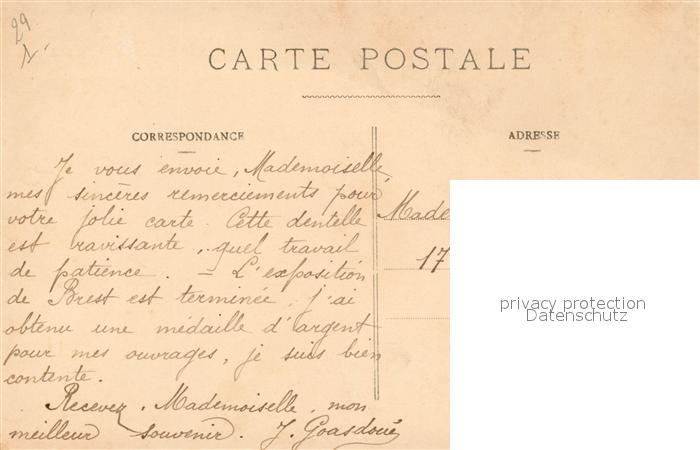 29
1.
CARTE POSTALE
CORRESPONDANCE
ADRESSE
Je vous envoie, Mademoiselle,
mes sincères remerciements pour
votre jolie carte. Cette dentelle
est ravissante, quel travail
de patience. — L'exposition
de Brest est terminée, j'ai
obtenu une médaille d'argent
pour mes ouvrages, je suis bien
contente.
Recevez, Mademoiselle, mon
meilleur souvenir. J. Goasdoué
Made
17
privacy protection
Datenschutz